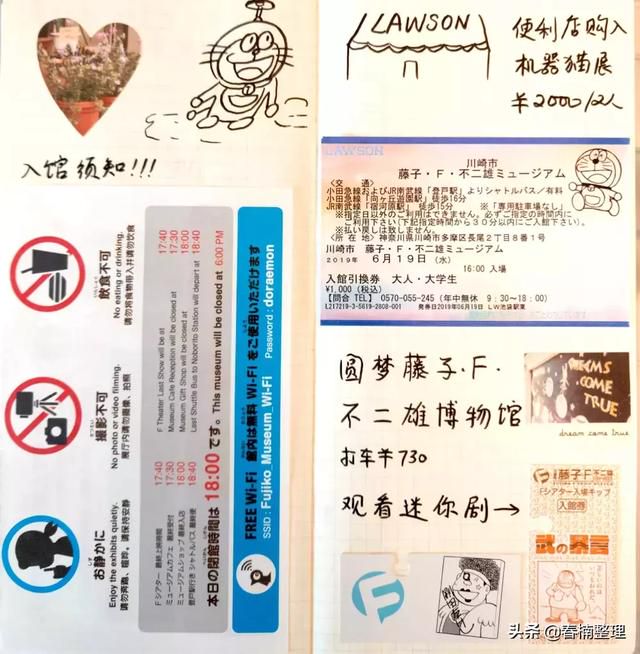 入馆须知!!!
飲食不可
No eating or drinking.
请勿将食物带入并请勿饮食
撮影不可
No photo or video filming.
展厅内请勿摄像、拍照
お静かに
Enjoy the exhibits quietly.
请勿奔跑、喧哗。请保持安静
Fシアター 最終上映時間 17:40
ミュージアムカフェ 最終受付 17:30
ミュージアムショップ 最終入店 18:00
登戸駅行き シャトルバス 最終便 18:40
F Theater Last Show will be at 17:40
Museum Cafe Reception will be closed at 17:30
Museum Gift Shop will be closed at 18:00
Last Shuttle Bus to Noborito Station will depart at 18:40
本日の閉館時間は 18:00 です。This museum will be closed at 6:00 PM
FREE Wi-Fi 館内は無料 Wi-Fi をご使用いただけます
SSID : Fujiko_Museum_Wi-Fi Password : doraemon
LAWSON
便利店购入
机器猫展
¥2000/2人
LAWSON
川崎市
藤子・F・不二雄ミュージアム
<交 通>
小田急線およびJR南武線「登戸駅」よりシャトルバス/有料
小田急線「向ヶ丘遊園駅」徒歩16分
JR南武線「宿河原駅」 徒歩15分 ※「専用駐車場なし」
※指定日以外のご利用はできません。必ずご指定の時間内に
ご利用下さい(下記指定時間から30分以内にご入館下さい)。
※払い戻しは致しません。
<所 在 地> 神奈川県川崎市多摩区長尾2丁目8番1号
川崎市 藤子・F・不二雄ミュージアム
2019年 6月19日 (水)
16:00 入場
入館引換券 大人・大学生
¥1,000(税込)
【問合 TEL】 0570-055-245 (年中無休 9:30~18:00)
L217219-3-5619-2808-001 発券日2019年06月19日 LW池袋駅東
圆梦藤子·F·
不二雄博物馆
打车¥730
观看迷你剧→
DREAMS
COME
TRUE
dream come true
藤子・F・不二雄
Fシアター入場キップ
入館券
武の男言
F
头条 @春楠整理